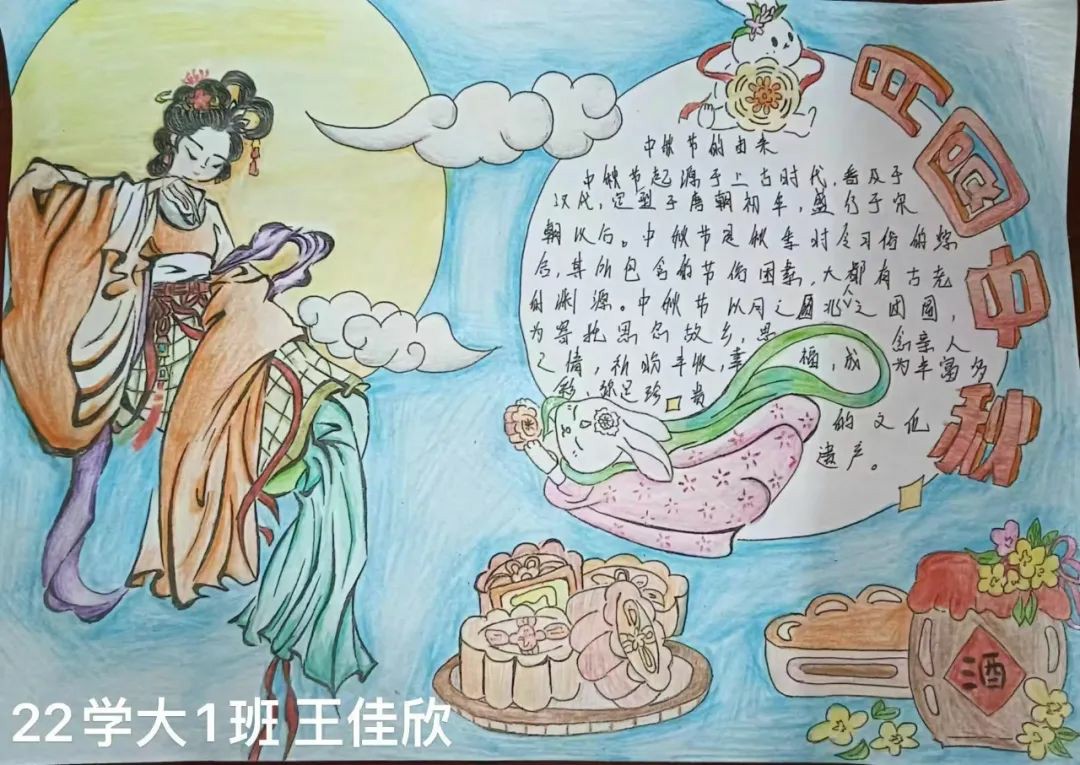 月圆中秋
中秋节的由来
中秋节起源于上古时代，普及于
汉代，定型于唐朝初年，盛行于宋
朝以后。中秋节是秋季时令习俗的综
合，其所包含的节俗因素，大都有古老
的渊源。中秋节以月之圆兆人之团圆，
为寄托思念故乡，思念亲人
之情，祈盼丰收，幸福，成为丰富多
彩，弥足珍贵
的文化
遗产。
酒
22学大1班 王佳欣